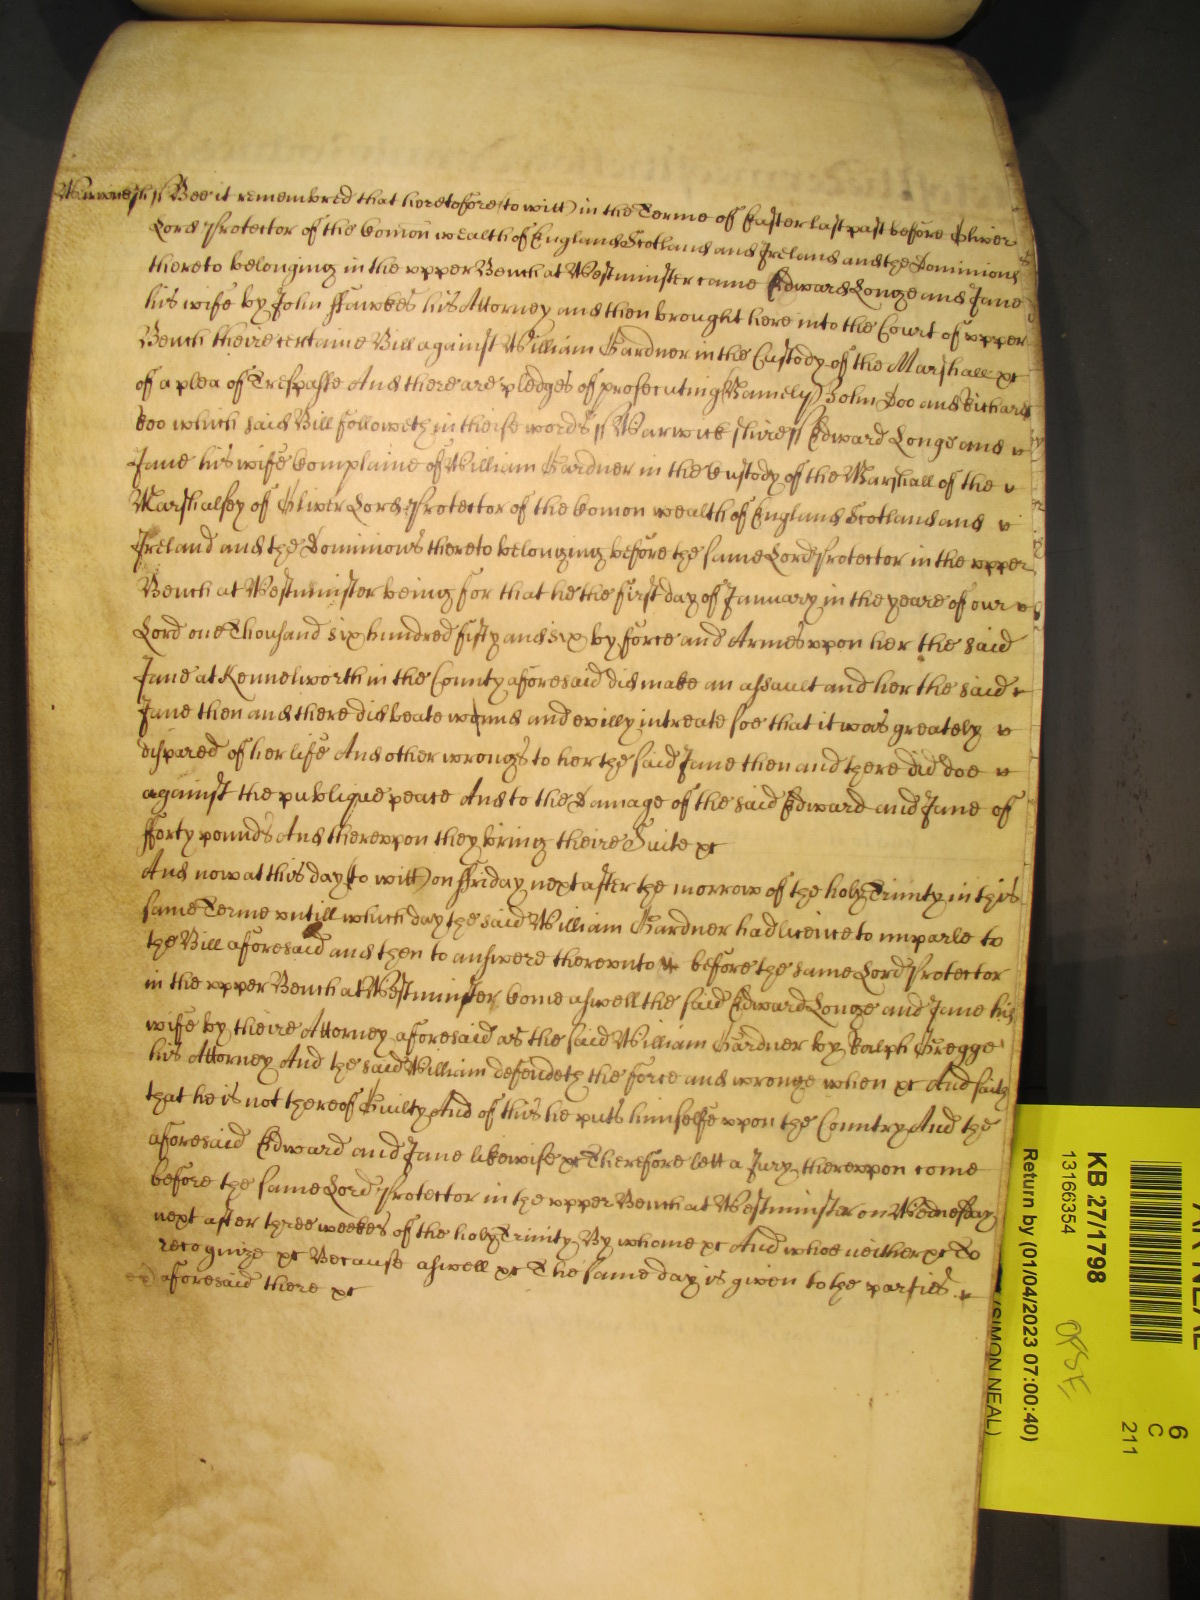 Warwicksh// Bee it remembred that heretofore (to witt) in the Terme of Easter last past before Oliver
Lord Protector of the Comon wealth of England Scotland and Ireland and the Dominions
thereto belonging in the upper Bench at Westminster came Edward Longe and Jane
his wife by John Hawkes his Attorney and then brought here into the Court of upper
Bench theire certaine Bill against William Gardner in the Custody of the Marshall &c
of a plea of Trespasse And there are pledges of prosecuting (Namely) John Doo and Richard
Roo which said Bill followeth in theise words// Warwickshire// Edward Longe and
Jane his wife Complaine of William Gardner in the Custody of the Marshall of the
Marshalsey of Oliver Lord Protector of the Comon wealth of England Scotland and
Ireland and the Dominions thereto belonging before the same Lord Protector in the upper
Bench at Westminster being for that he the first day of January in the yeare of our
Lord one Thousand six hundred fifty and six by force and Armes upon her the said
Jane at Kennelworth in the County aforesaid did make an assault and her the said
Jane then and there did beate wound and evilly intreate soe that it was greately
dispared of her life And other wrongs to her the said Jane then and there did doe
against the publique peace And to the Damage of the said Edward and Jane of
fforty pounds And thereupon they bring theire Suite &c
And now at this day (to witt) on ffriday next after the morrow of the holy Trinity in this
same Terme untill which day the said William Gardner had licence to imparle to
the Bill aforesaid and then to answere thereunto before the same Lord Protector
in the upper Bench at Westminster Come aswell the said Edward Longe and Jane his
wife by theire Attorney aforesaid as the said William Gardner by Ralph Gregge
his Attorney And the said William defendeth the force and wronge when &c And saith
that he is not thereof Guilty And of this he puts himselfe upon the Country And the
aforesaid Edward and Jane likewise &c Therefore lett a Jury thereupon come
before the same Lord Protector in the upper Bench at Westminster on Wednesday
next after three weekes of the holy Trinity By whome &c And whoe neither &c To
recognize &c Because aswell &c The same day is given to the parties
aforesaid there &c
KB 27/1798
13166354
Return by (01/04/2023 07:00:40)
(SIMON NEAL)
6
C
211